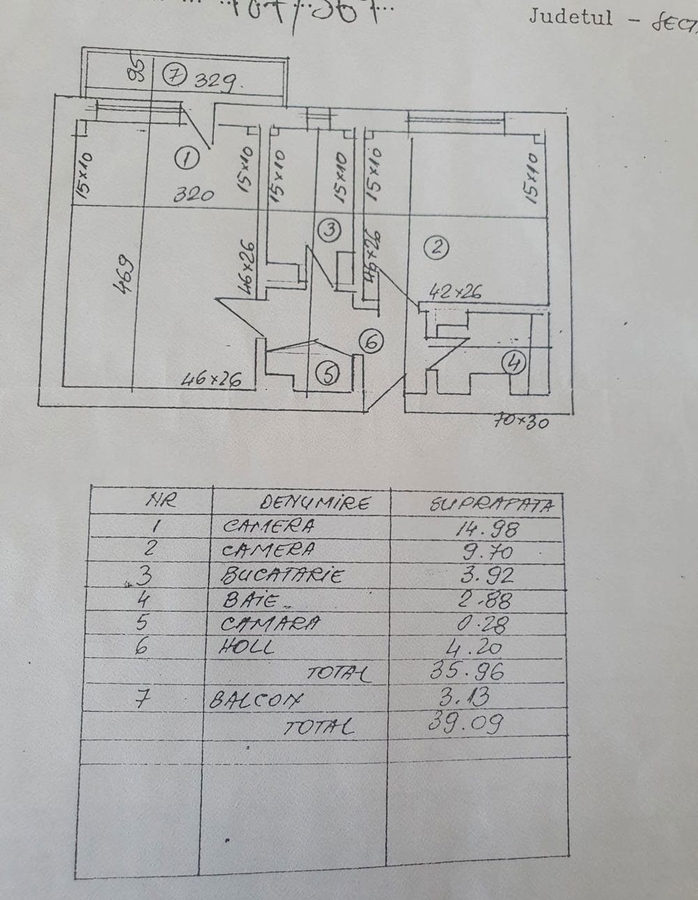 Judetul -
95 7 329
1
15×10
15×10
15×10
15×10
15×10
15×10
320
3
2
469
46×26
46×26
42×26
6
4
5
46×26
70×30
NR DENUMIRE SUPRAFATA
1 CAMERA 14.98
2 CAMERA 9.70
3 BUCATARIE 3.92
4 BAIE 2.88
5 CAMARA 0.28
6 HOLL 4.20
TOTAL 35.96
7 BALCON 3.13
TOTAL 39.09